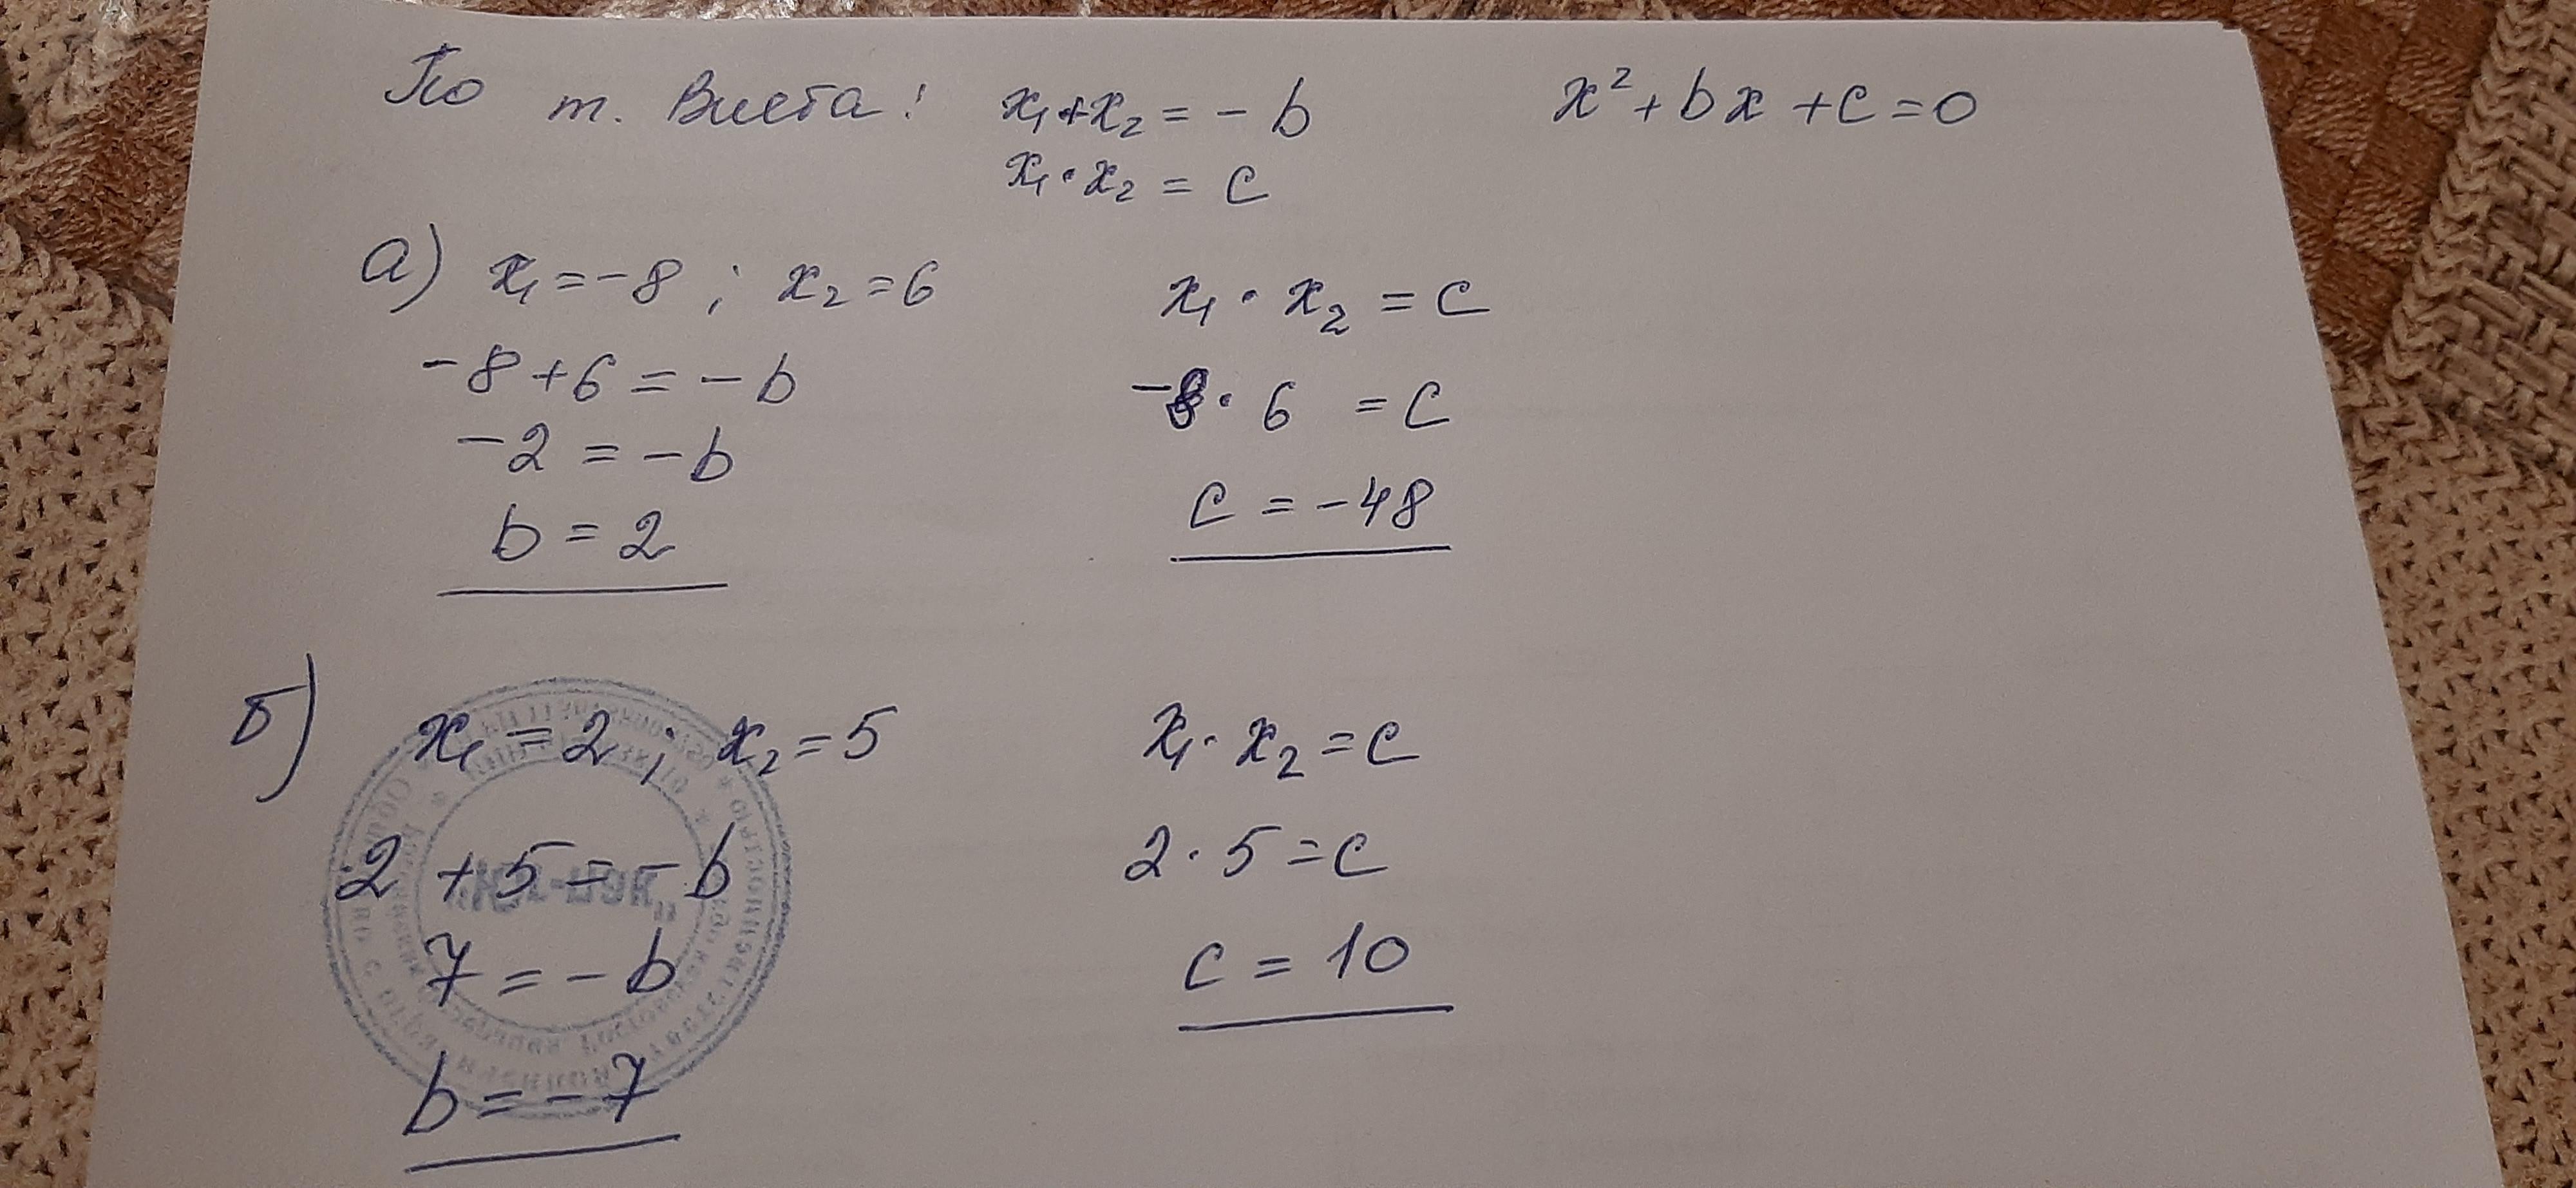 По т. Виета: x₁+x₂ = -b
x₁·x₂ = c
x²+bx+c=0
а) x₁=-8; x₂=6
-8+6=-b
-2=-b
b=2
x₁·x₂=c
-8·6=c
c=-48
б) x₁=2; x₂=5
2+5=-b
7=-b
b=-7
x₁·x₂=c
2·5=c
c=10